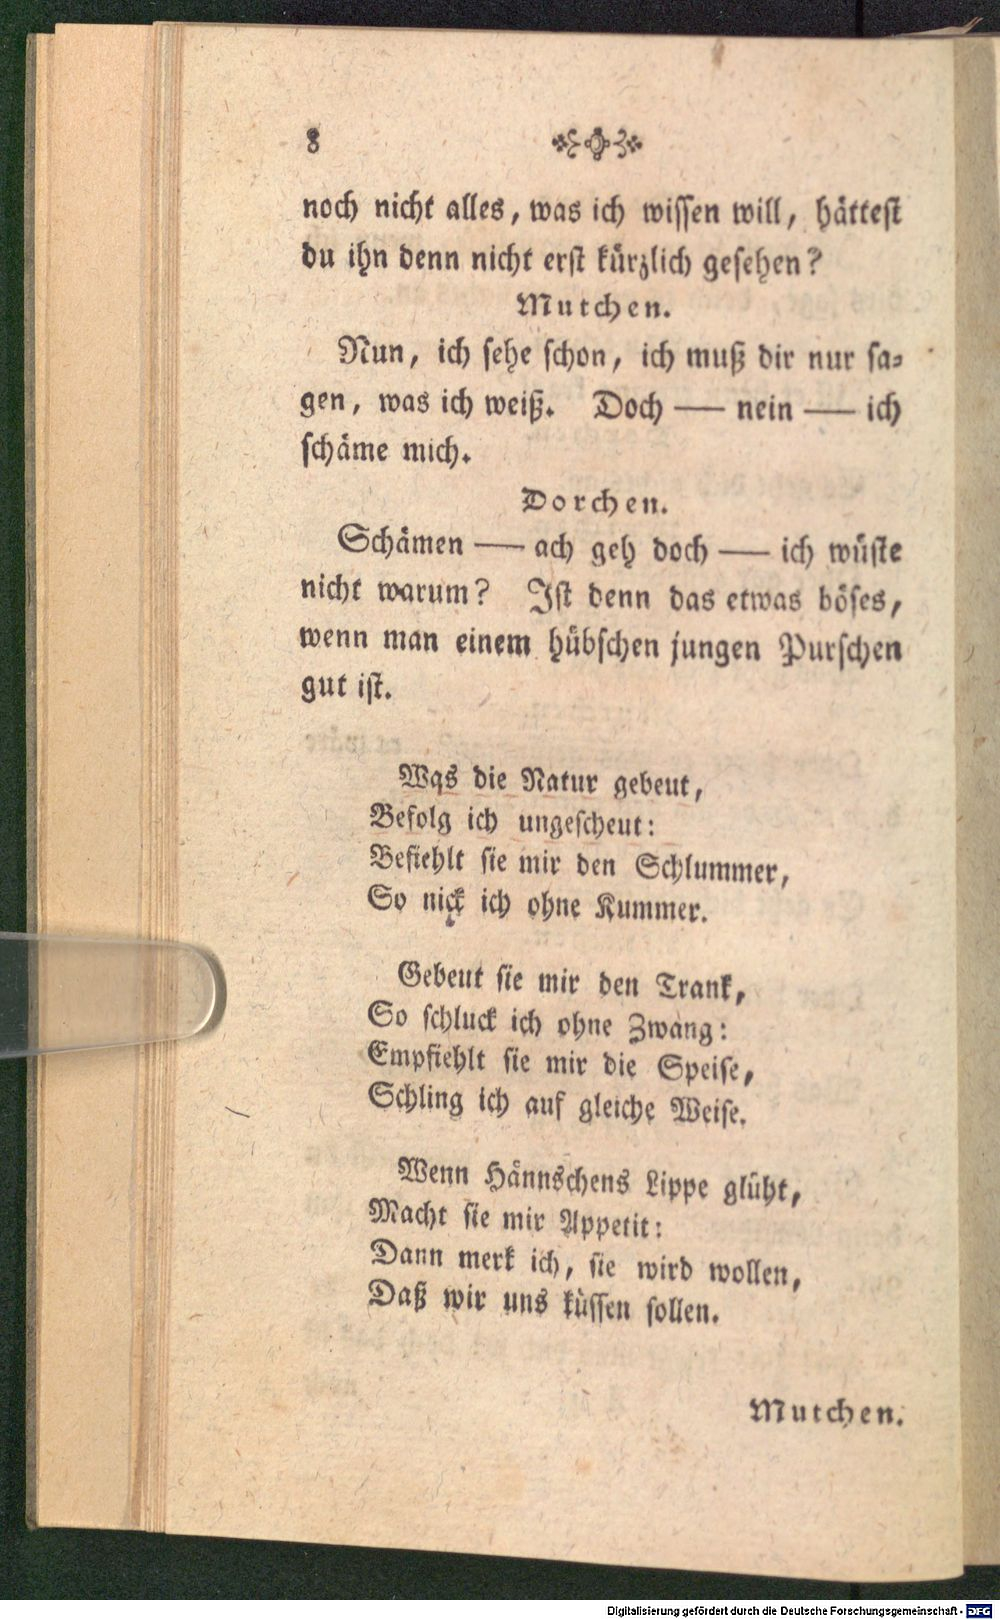 8
noch nicht alles, was ich wissen will, hättest
du ihn denn nicht erst kürzlich gesehen?
Mutchen.
Nun, ich sehe schon, ich muß dir nur sa-
gen, was ich weiß. Doch — nein — ich
schäme mich.
Dorchen.
Schämen — ach geh doch — ich wüste
nicht warum? Ist denn das etwas böses,
wenn man einem hübschen jungen Purschen
gut ist.
Was die Natur gebeut,
Befolg ich ungescheut:
Befiehlt sie mir den Schlummer,
So nick ich ohne Kummer.
Gebeut sie mir den Trank,
So schluck ich ohne Zwang:
Empfiehlt sie mir die Speise,
Schling ich auf gleiche Weise.
Wenn Hännschens Lippe glüht,
Macht sie mir Appetit:
Dann merk ich, sie wird wollen,
Daß wir uns küssen sollen.
Mutchen.
Digitalisierung gefördert durch die Deutsche Forschungsgemeinschaft - DFG